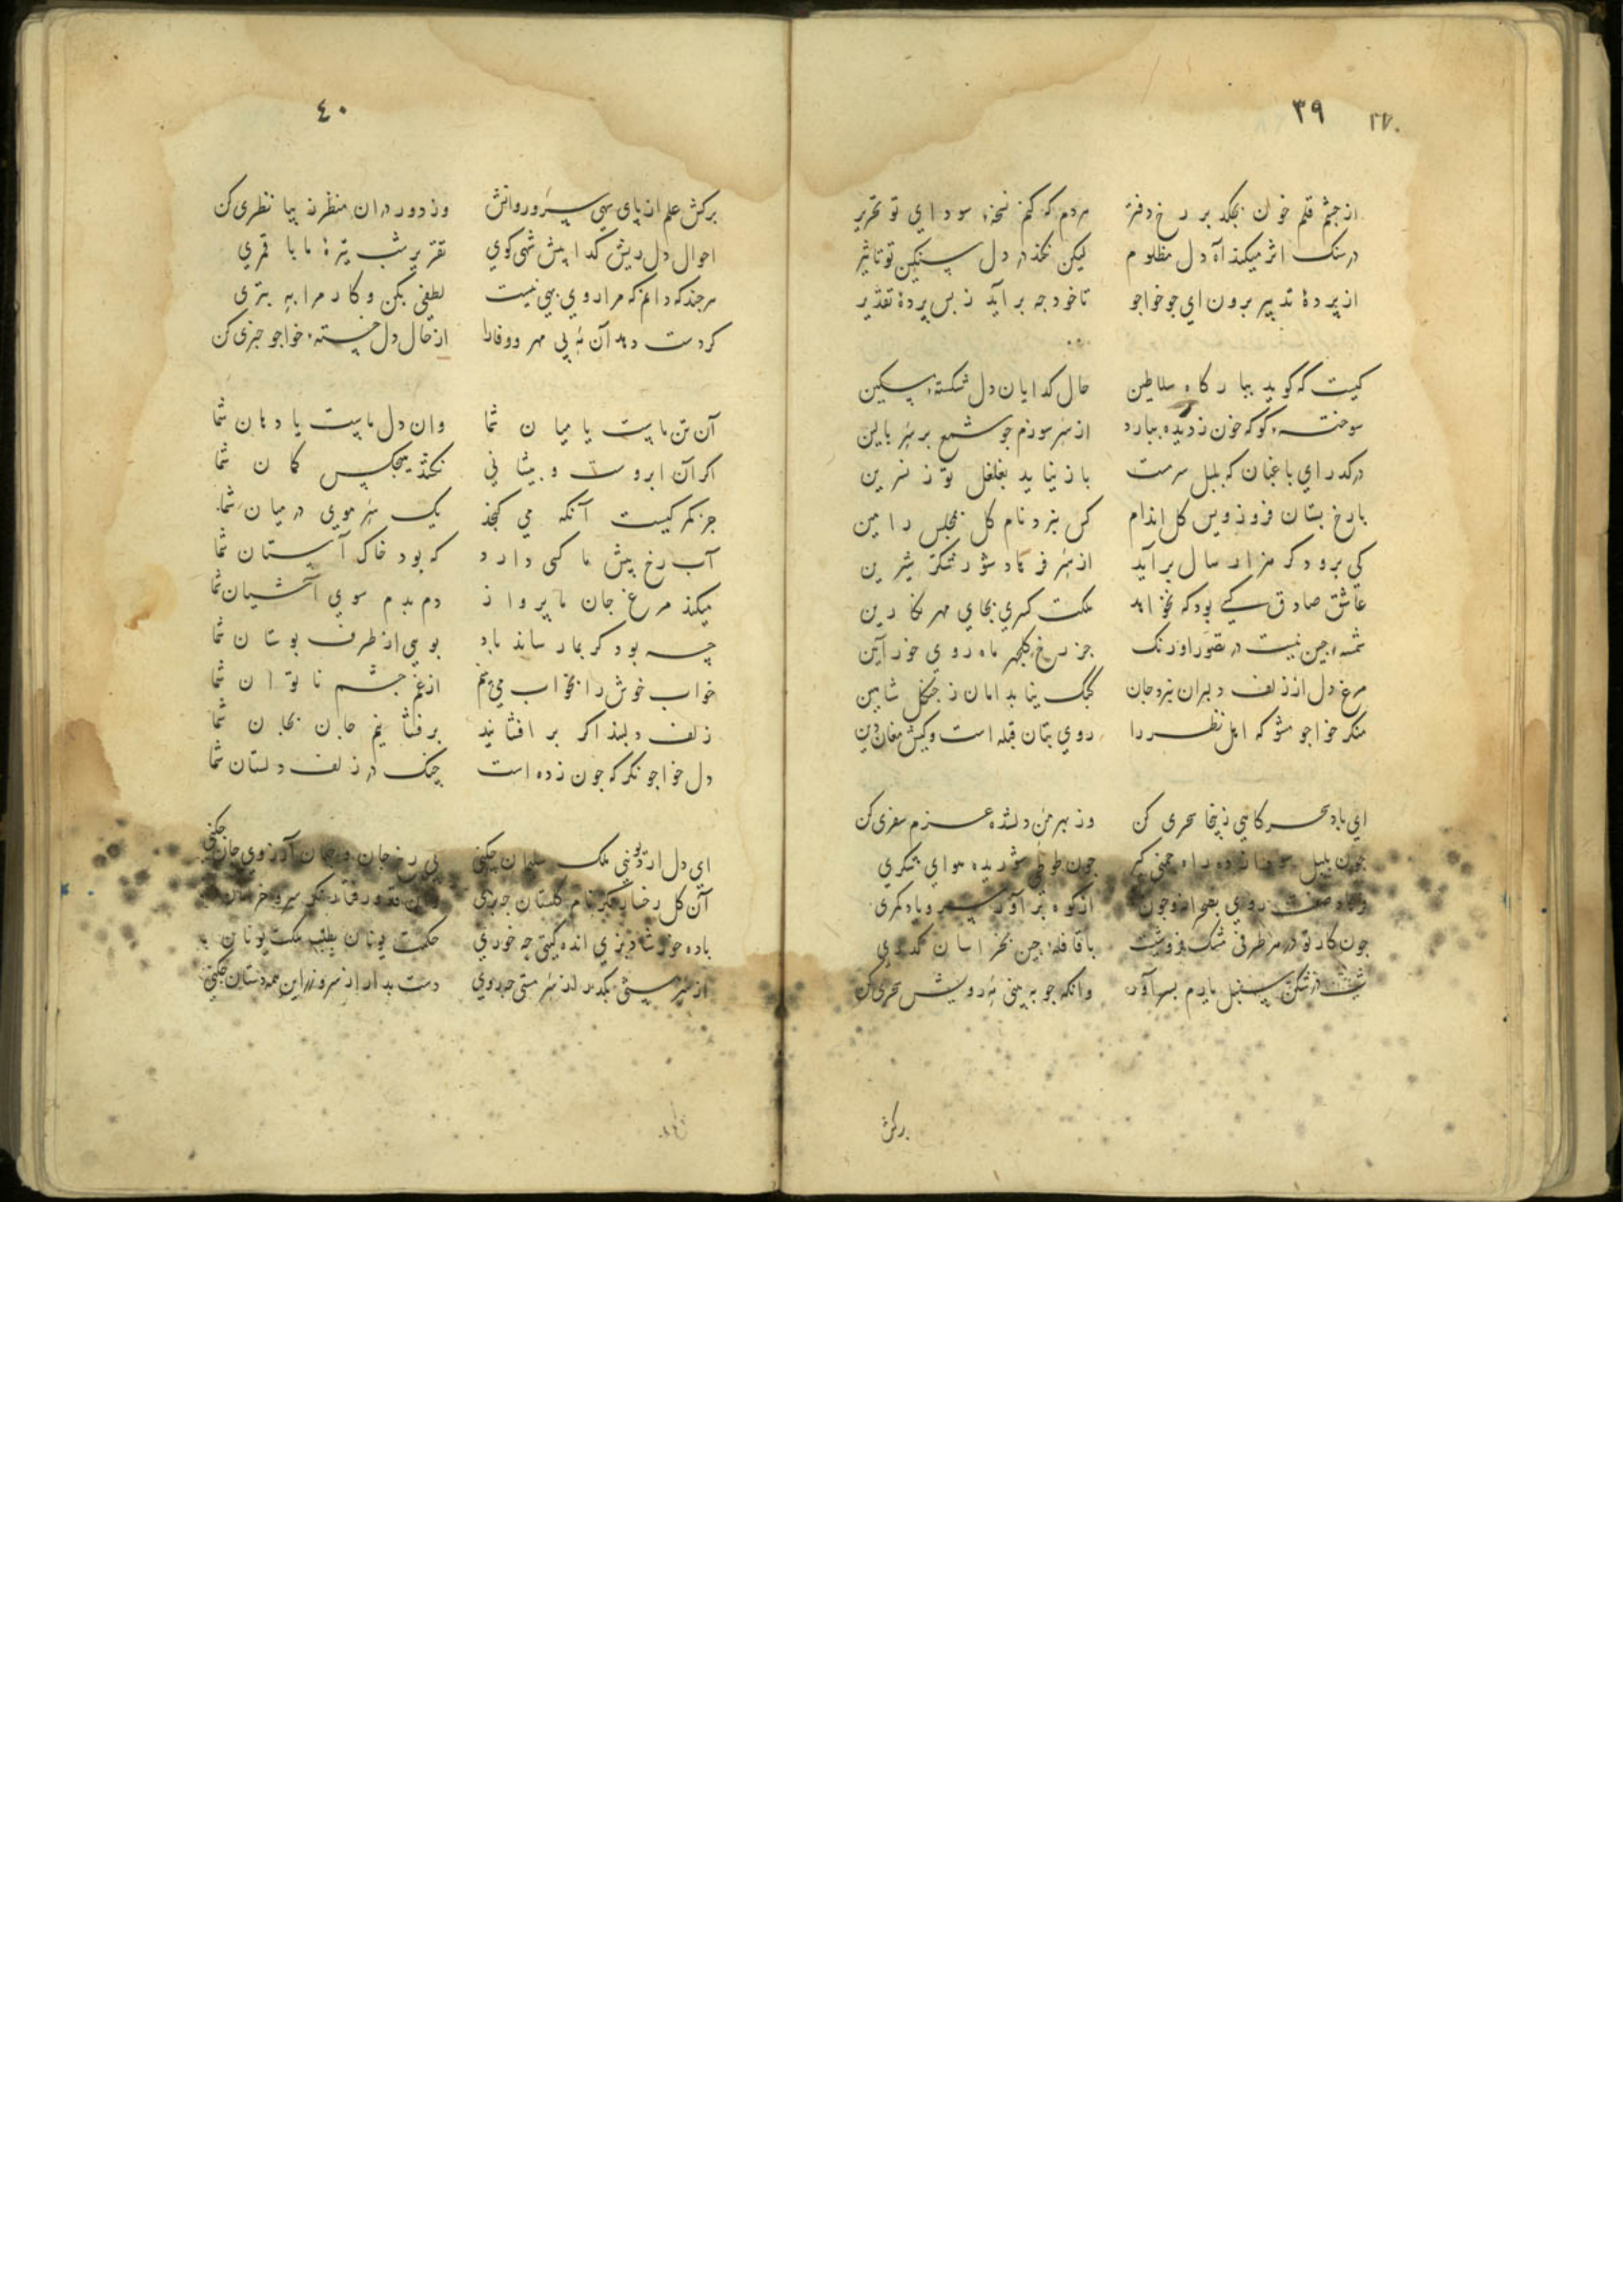 ٣٩
از چشم قلم خون بچکد بر رخ دفتر هردم که کنم نسخهٔ سودای تو تحریر
در سنک اثر میکند آه دل مظلوم لیکن نکند در دل سنکین تو تاثیر
از پردهٔ تدبیر برون ای جو خواجو تا خود جه برآید ز بس پردهٔ تقدیر
کیست که کوید ببارکاه سلاطین حال کدایان دل شکستهٔ مسکین
سوخته کو که خون ز دیده ببارد از سر سوزم جو شمع بر سر بالین
درکدر ای باغبان که بلبل سرمست باز نیاید بغلغل تو ز نسرین
با رخ بستان فروز ویس کل اندام کس نبرد نام کل بمجلس رامین
کی برود کر هزار سال برآید از سر فرهاد شور شکر شیرین
عاشق صادق کسی بود که نخواهد ملکت کسری بجای مهر نکارین
شمسهٔ جین نیست در تصور اورنک جز رخ کلجهر ماه روی خورآیین
مرغ دل از زلف دلبران نبرد جان کبک نیابد امان ز جنکل شاهین
منکر خواجو مشو که اهل نظر را روی بتان قبله است و کیش مغان دین
ای باد سحرکاهی زینجا سحری کن وز بهر من دلشده عزم سفری کن
جون بلبل سودا زده راه جمنی کیر جون طوطی شوریده هوای شکری
فرهاد صفت روی بصحرا نه و جون از کوه برآور سر و یاد کمری
جون کار تو در هر طرفی مشک فروشیست با قافلهٔ جین بخراسان کدری
شب در شکن سنبل یارم بسر آور وانکه جو ببینی مه رویش سحری کن
برکش
٤٠
برکش علم از پای سهی سرو روانش وز دور در ان منظر زیبا نظری کن
احوال دل ریش کدا پیش شهی کوی تقریر شب تیرهٔ ما با قمری
هرجند که دانم که مرا روی بهی نیست لطفی بکن و کار مرا به بتری
کر دست دهد آن مه بی مهر و وفا را از حال دل خستهٔ خواجو خبری کن
آن تن ماست یا میان شما وان دل ماست یا دهان شما
اکر آن ابروست و پیشانی نکشد هیجکس کمان شما
جز کمر کیست آنکه می کنجد یک سر موی در میان شما
آب رخ پیش ما کسی دارد که بود خاک آستان شما
میکند مرغ جان ما پرواز دم بدم سوی آشیان شما
چه بود کر بما رساند باد بویی از طرف بوستان شما
خواب خوش را بخواب می بینم از غم جشم ناتوان شما
زلف دلبند اکر برافشانید برفشانیم جان بجان شما
دل خواجو نکر که جون زده است جنک در زلف دلستان شما
ای دل ار تو نیی ملک سلیمان جکنی بی رخ جان و جهان آرزوی جان جکنی
باده خور شاد بزی انده کیتی جه خوری حکمت یونان بطلب ملکت یونان
دست بدار از سر و زر این همه دستان جکنی